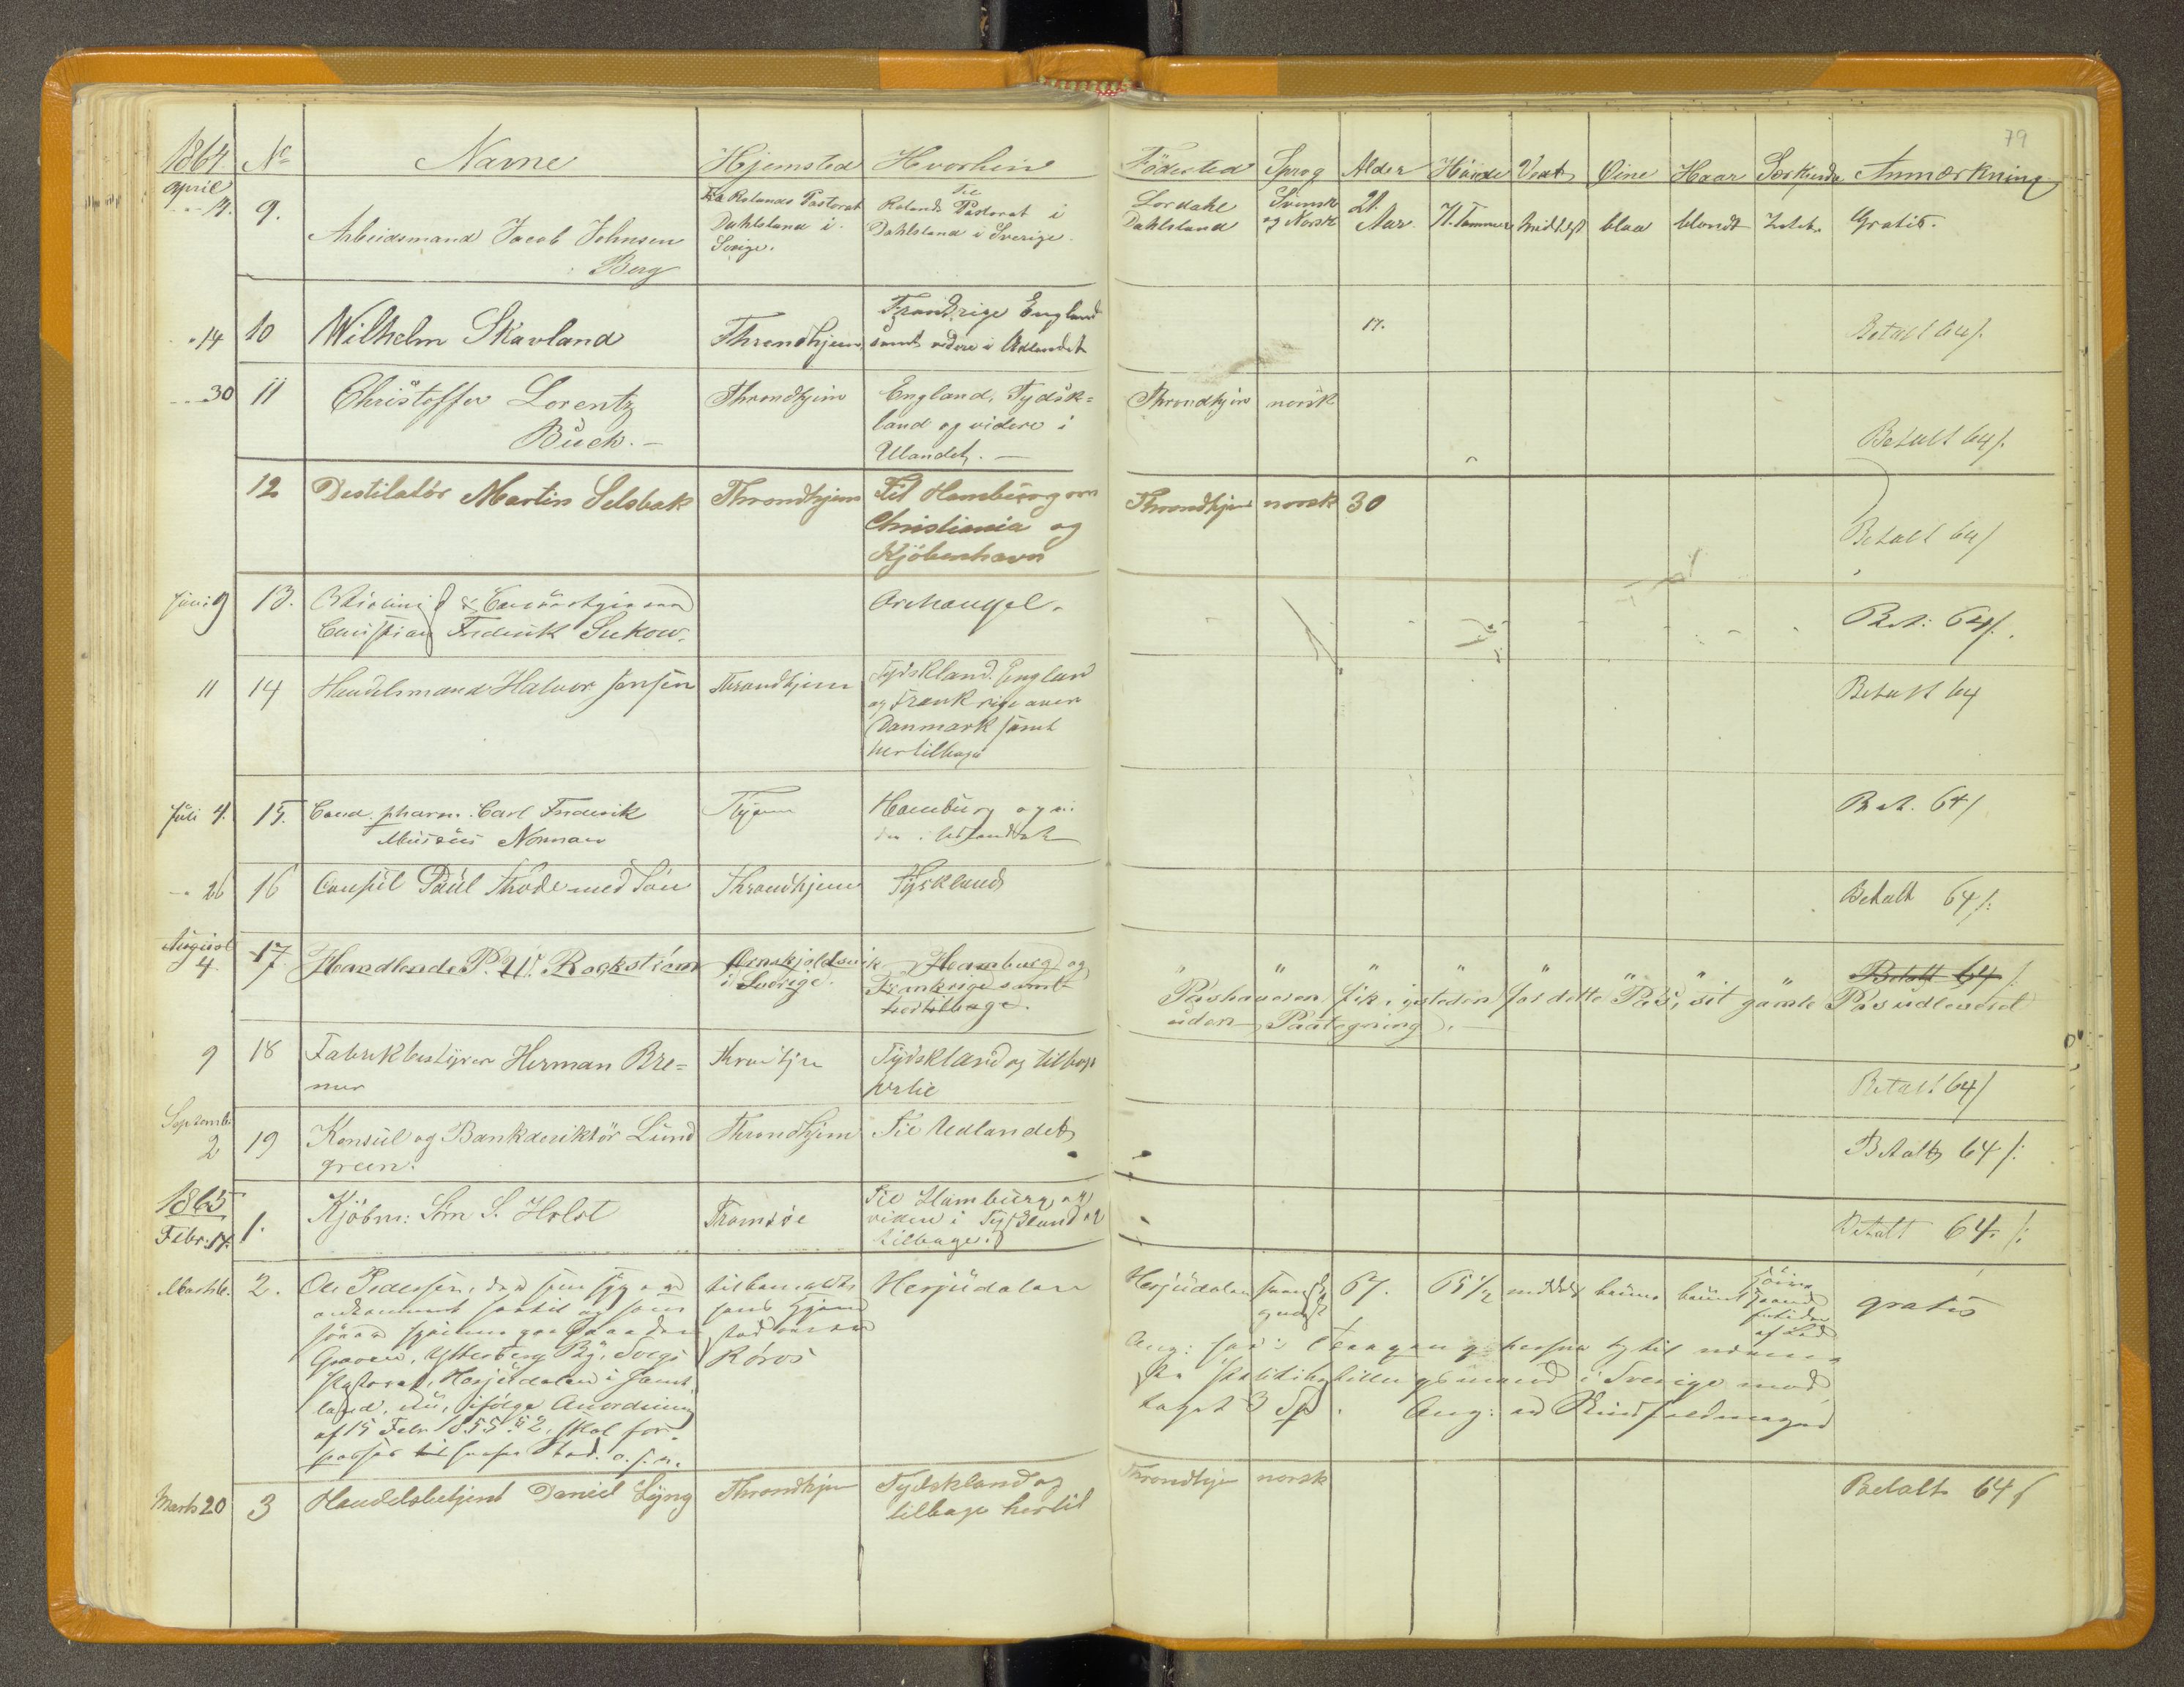 79
1864 No Navne Hjemsted Hvorhen Födested Sprog Alder Höide Vext Øine Haar Særkjende Anmærkning
April
4. 9. Arbeidsmand Jacob Johnsen
Berg
Fra Rolands Pastorat
Dahlsland i
Sverige.
Til
Rolands Pastorat i
Dahlsland i Sverige.
Dahlsland
Svensk
og Norsk
21.
Aar
71. Tommer Middels blaa blondt Intet. Gratis.
14 10 Wilhelm Skavland Throndhjem Frankrige England
samt videre i Udlandet
17. Betalt 64 /.
30 11 Christoffer Lorentz
Buck. -
Throndhjem England, Tydsk=
land og videre i
Ulandet. -
Throndhjem norsk
Betalt 64 /.
12 Destilatör Martin Selsbak Throndhjem Til Hamburg over
Christiania og
Kjöbenhavn
Throndhjem norsk 30
Betalt 64 /
Juni 9 13.
Christian Frederik Sukow.
Archangel. Bet: 64 /.
11 14 Handelsmand Halvor Jensen Throndhjem Tydskland. England
og Frankrige over
Danmark samt
hertilbage
Betalt 64
Juli 4. 15. Cand. pharm. Carl Frederik
Musæus Norman
Thjem Hamburg og vi=
dere i Udlandet
Bet. 64 /
26 16 Consul Paul Thode med Sön Throndhjem Tyskland Betalt 64 /:
August
4. 17 Handlende P. U. Rockström Örnskjoldsvik
i Sverige.
Hamburg og
Frankrige samt
hertilbage.
" " " " " " " " Betalt 64 /
Pashaveren fik i isteden for dette Pas, sit gamle Pas udleveret
uden Paategning. -
9 18 Fabrikbestyrer Herman Bre=
mer
Throndhjem Tydskland og tilbage
hertil
Betalt 64 /
Septemb.
2 19 Konsul og Bankderiktör Lund
green.
Throndhjem Til Udlandet Betalt 64 /:
1865
Febr: 14. 1. Kjöbm: Sm S. Holst Tromsöe Til Hamburg og
videre i Tyskland og
tilbage.
Betalt 64. /:
Marts 2. Ole Pedersen,
Herjedalen
Röros
i Jæmt
land, ifölge Anordning
af 15 Febr 1855 § 2, skal for=
passes
Herjedalen 67. 65 1/2 middels bruune bruunt gratis
i Sverige
Marts 20 3 Handelsbetjent Daniel Lyng Throndhjem Tydskland og
tilbage hertil
Throndhjem norsk Betalt 64 /